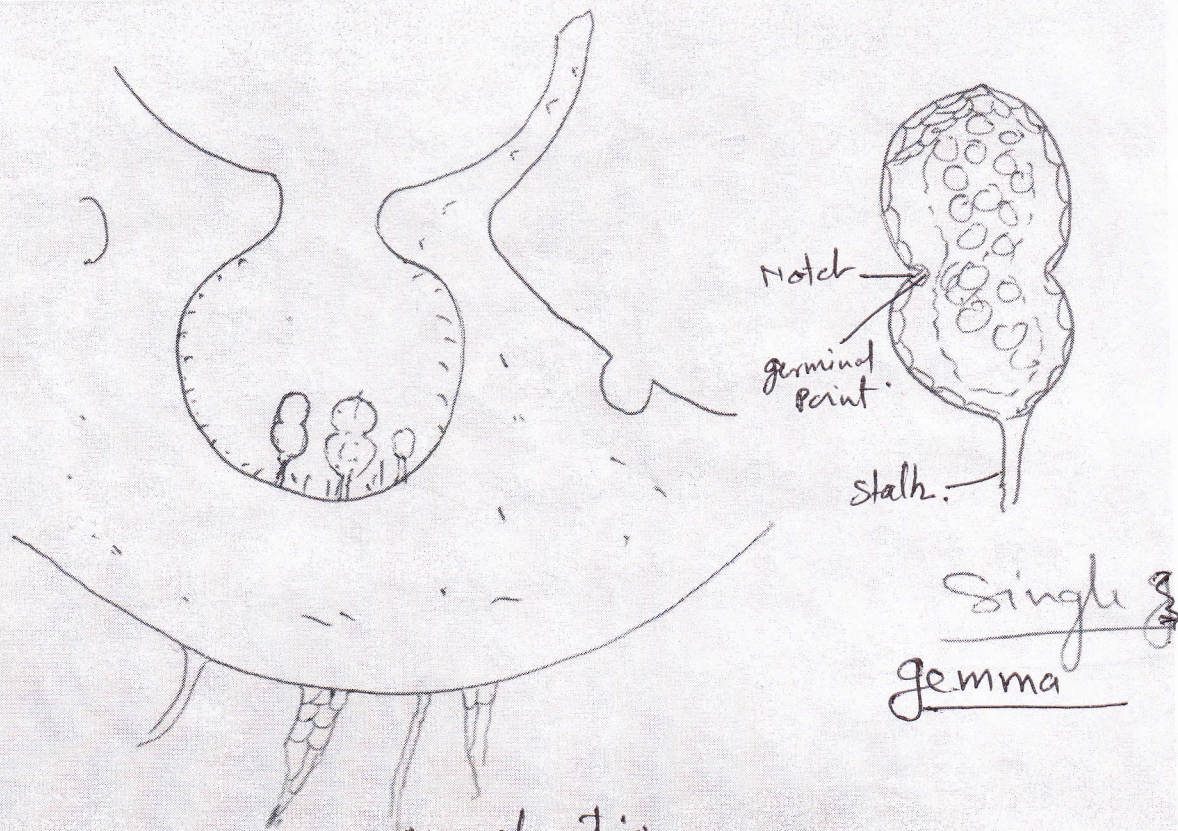 Notch
germinal
point.
Stalk.
Single
gemma